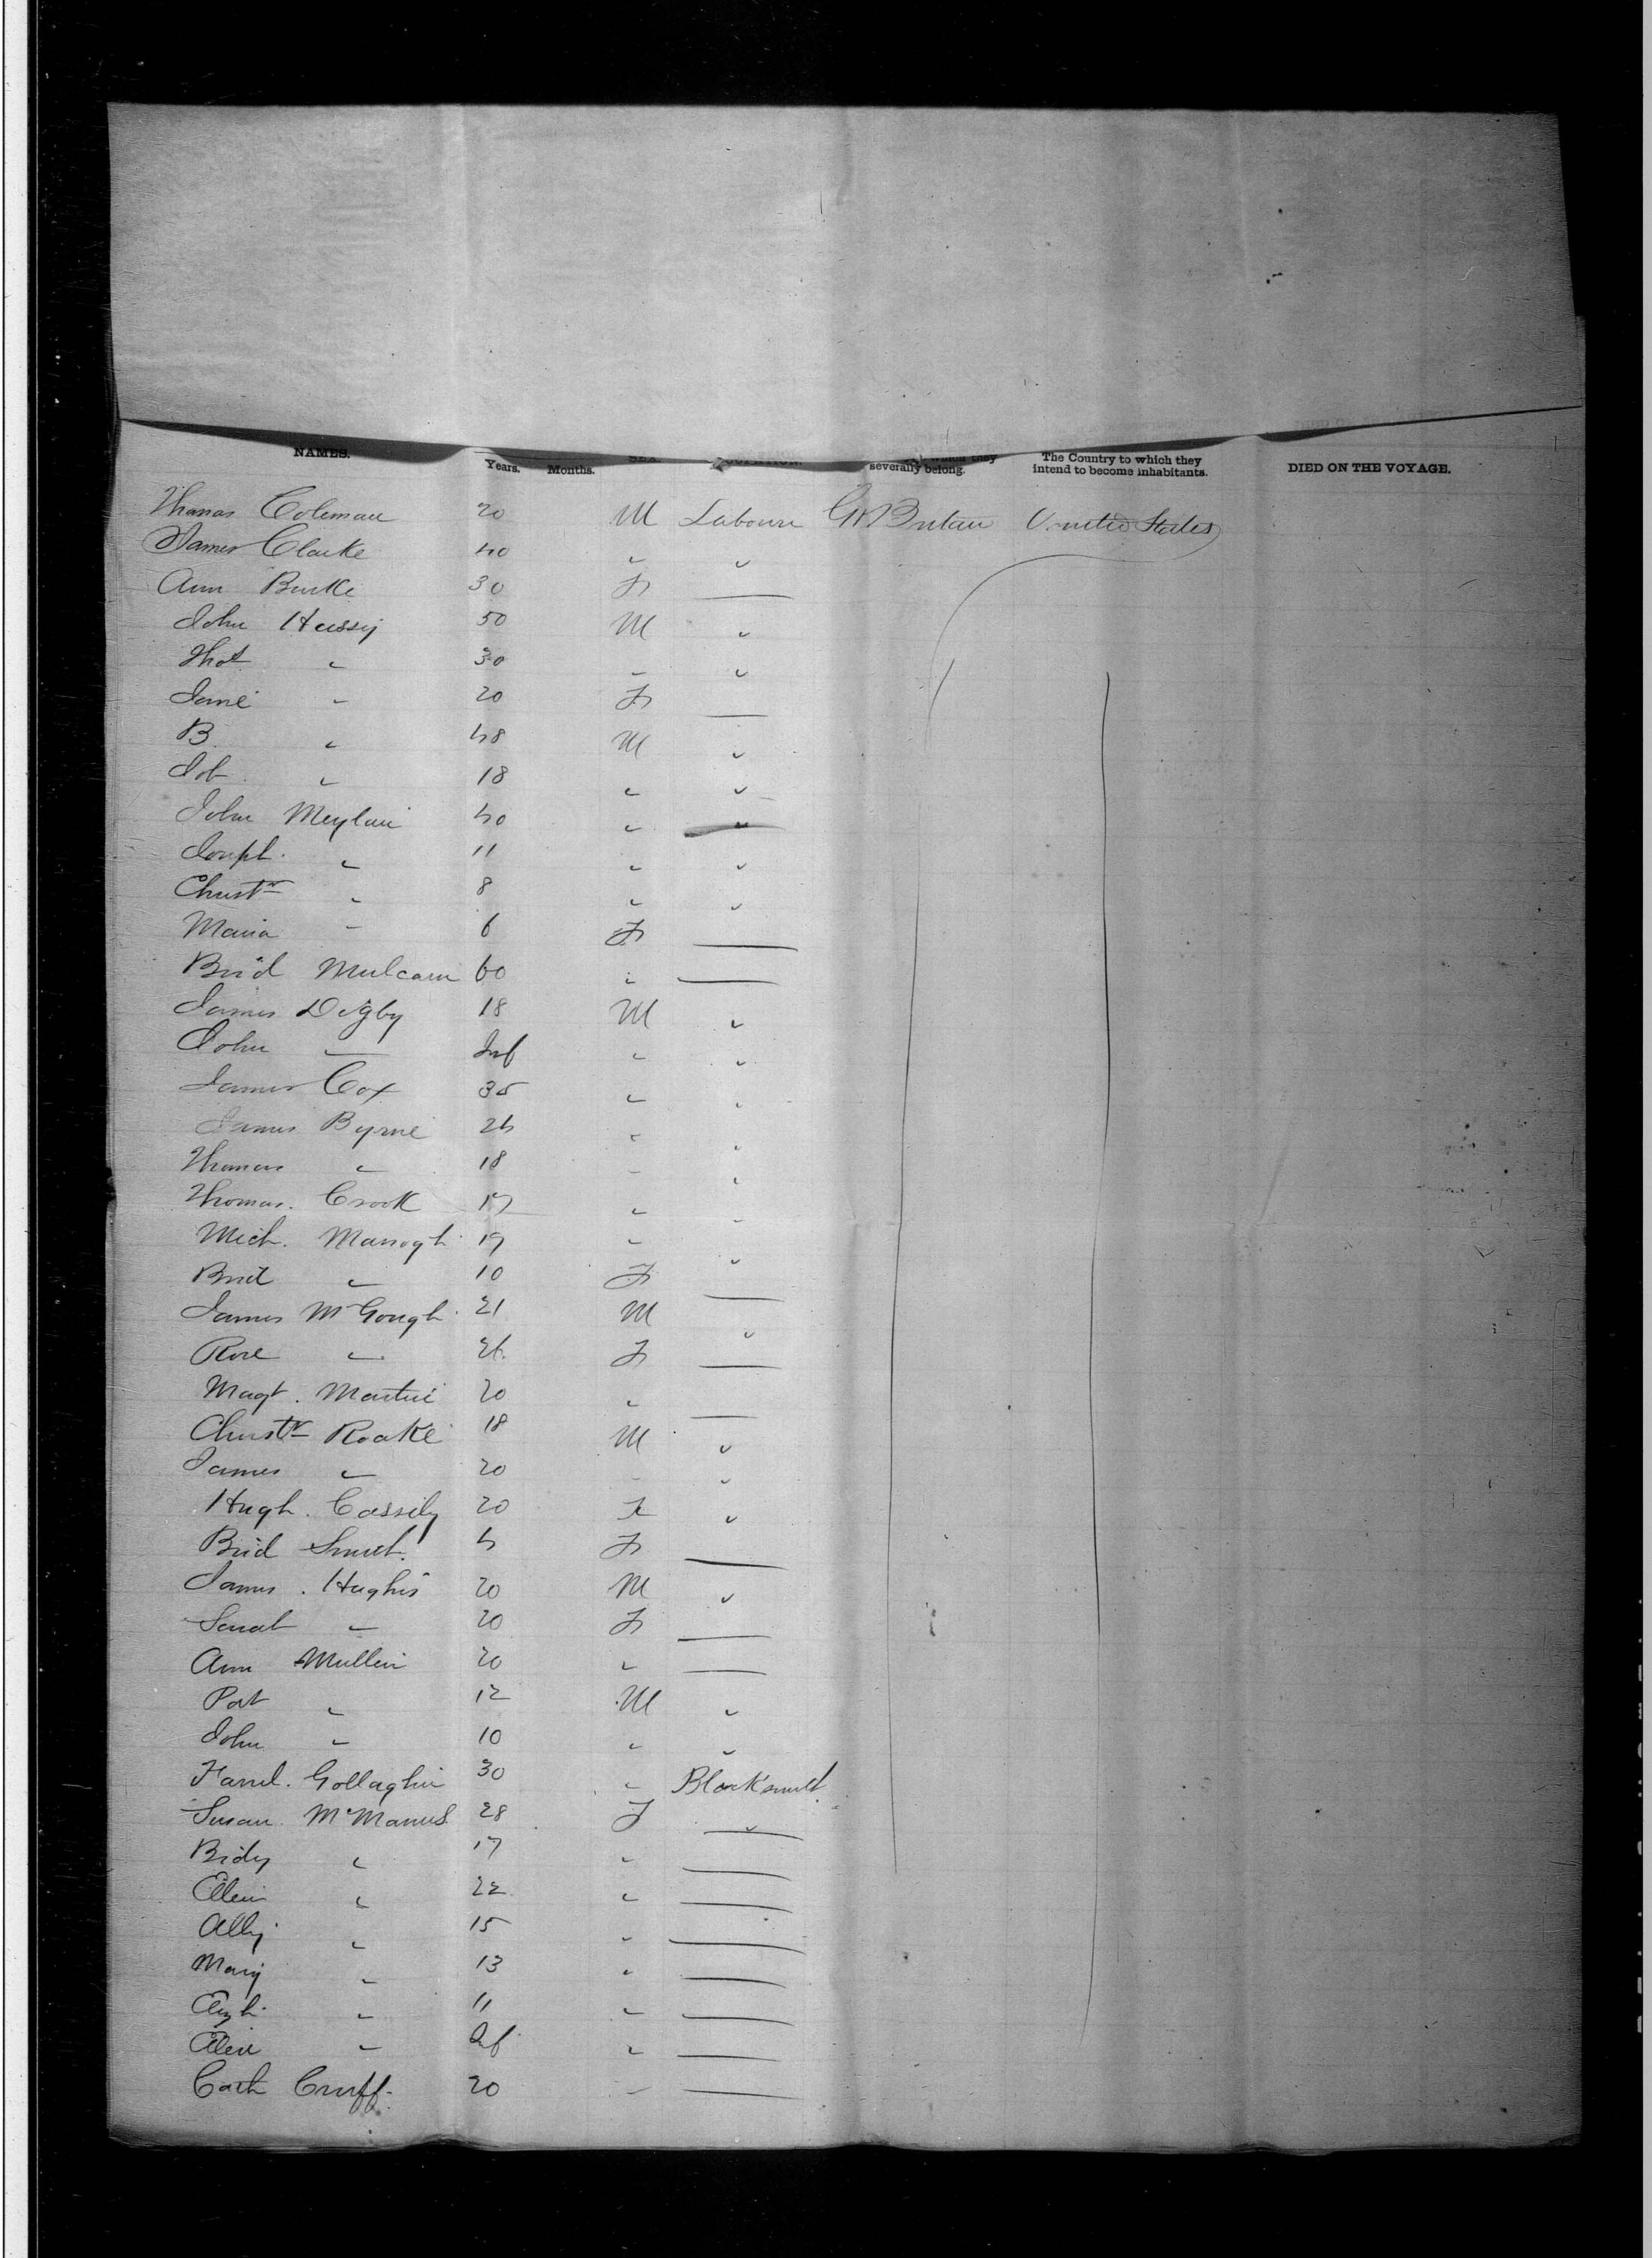 NAMES. Years. Months. which they severally belong. The Country to which they intend to become inhabitants. DIED ON THE VOYAGE.
Thomas Coleman 20 M Labourer Gt Britain United States
James Clarke 40 " "
Ann Burke 30 F —
John Hussy 50 M "
Thos " 30 " "
Jane " 20 F —
B " 48 M "
Job " 18 " "
John Meylan 40 " "
Joseph " 11 " "
Christr " 8 " "
Maria " 6 F —
Brid Mulcarn 60 " —
James Digby 18 M "
John — Inf " "
James Cox 35 " "
James Byrne 24 " "
Thomas " 18 " "
Thomas. Crook 17 " "
Mich. Manogh 19 " "
Brid " 10 F —
James McGough 21 M "
Rose " 26 F —
Magt. Martin 20 " —
Christr Roake 18 M "
James " 20 " "
Hugh. Cassily 20 "
Brid Smith 4 F —
James. Hughes 20 M "
Sarah " 20 F —
Ann Mullin 20 " —
Pat " 12 M "
John " 10 " "
Farrel. Gollaghin 30 " Blacksmith
Susan McManus 28 F —
Bidy " 17 " —
Ellen " 22 " —
Ally " 15 " —
Mary " 13 " —
" 11 " —
" Inf " —
Cath Cruff. 20 " —